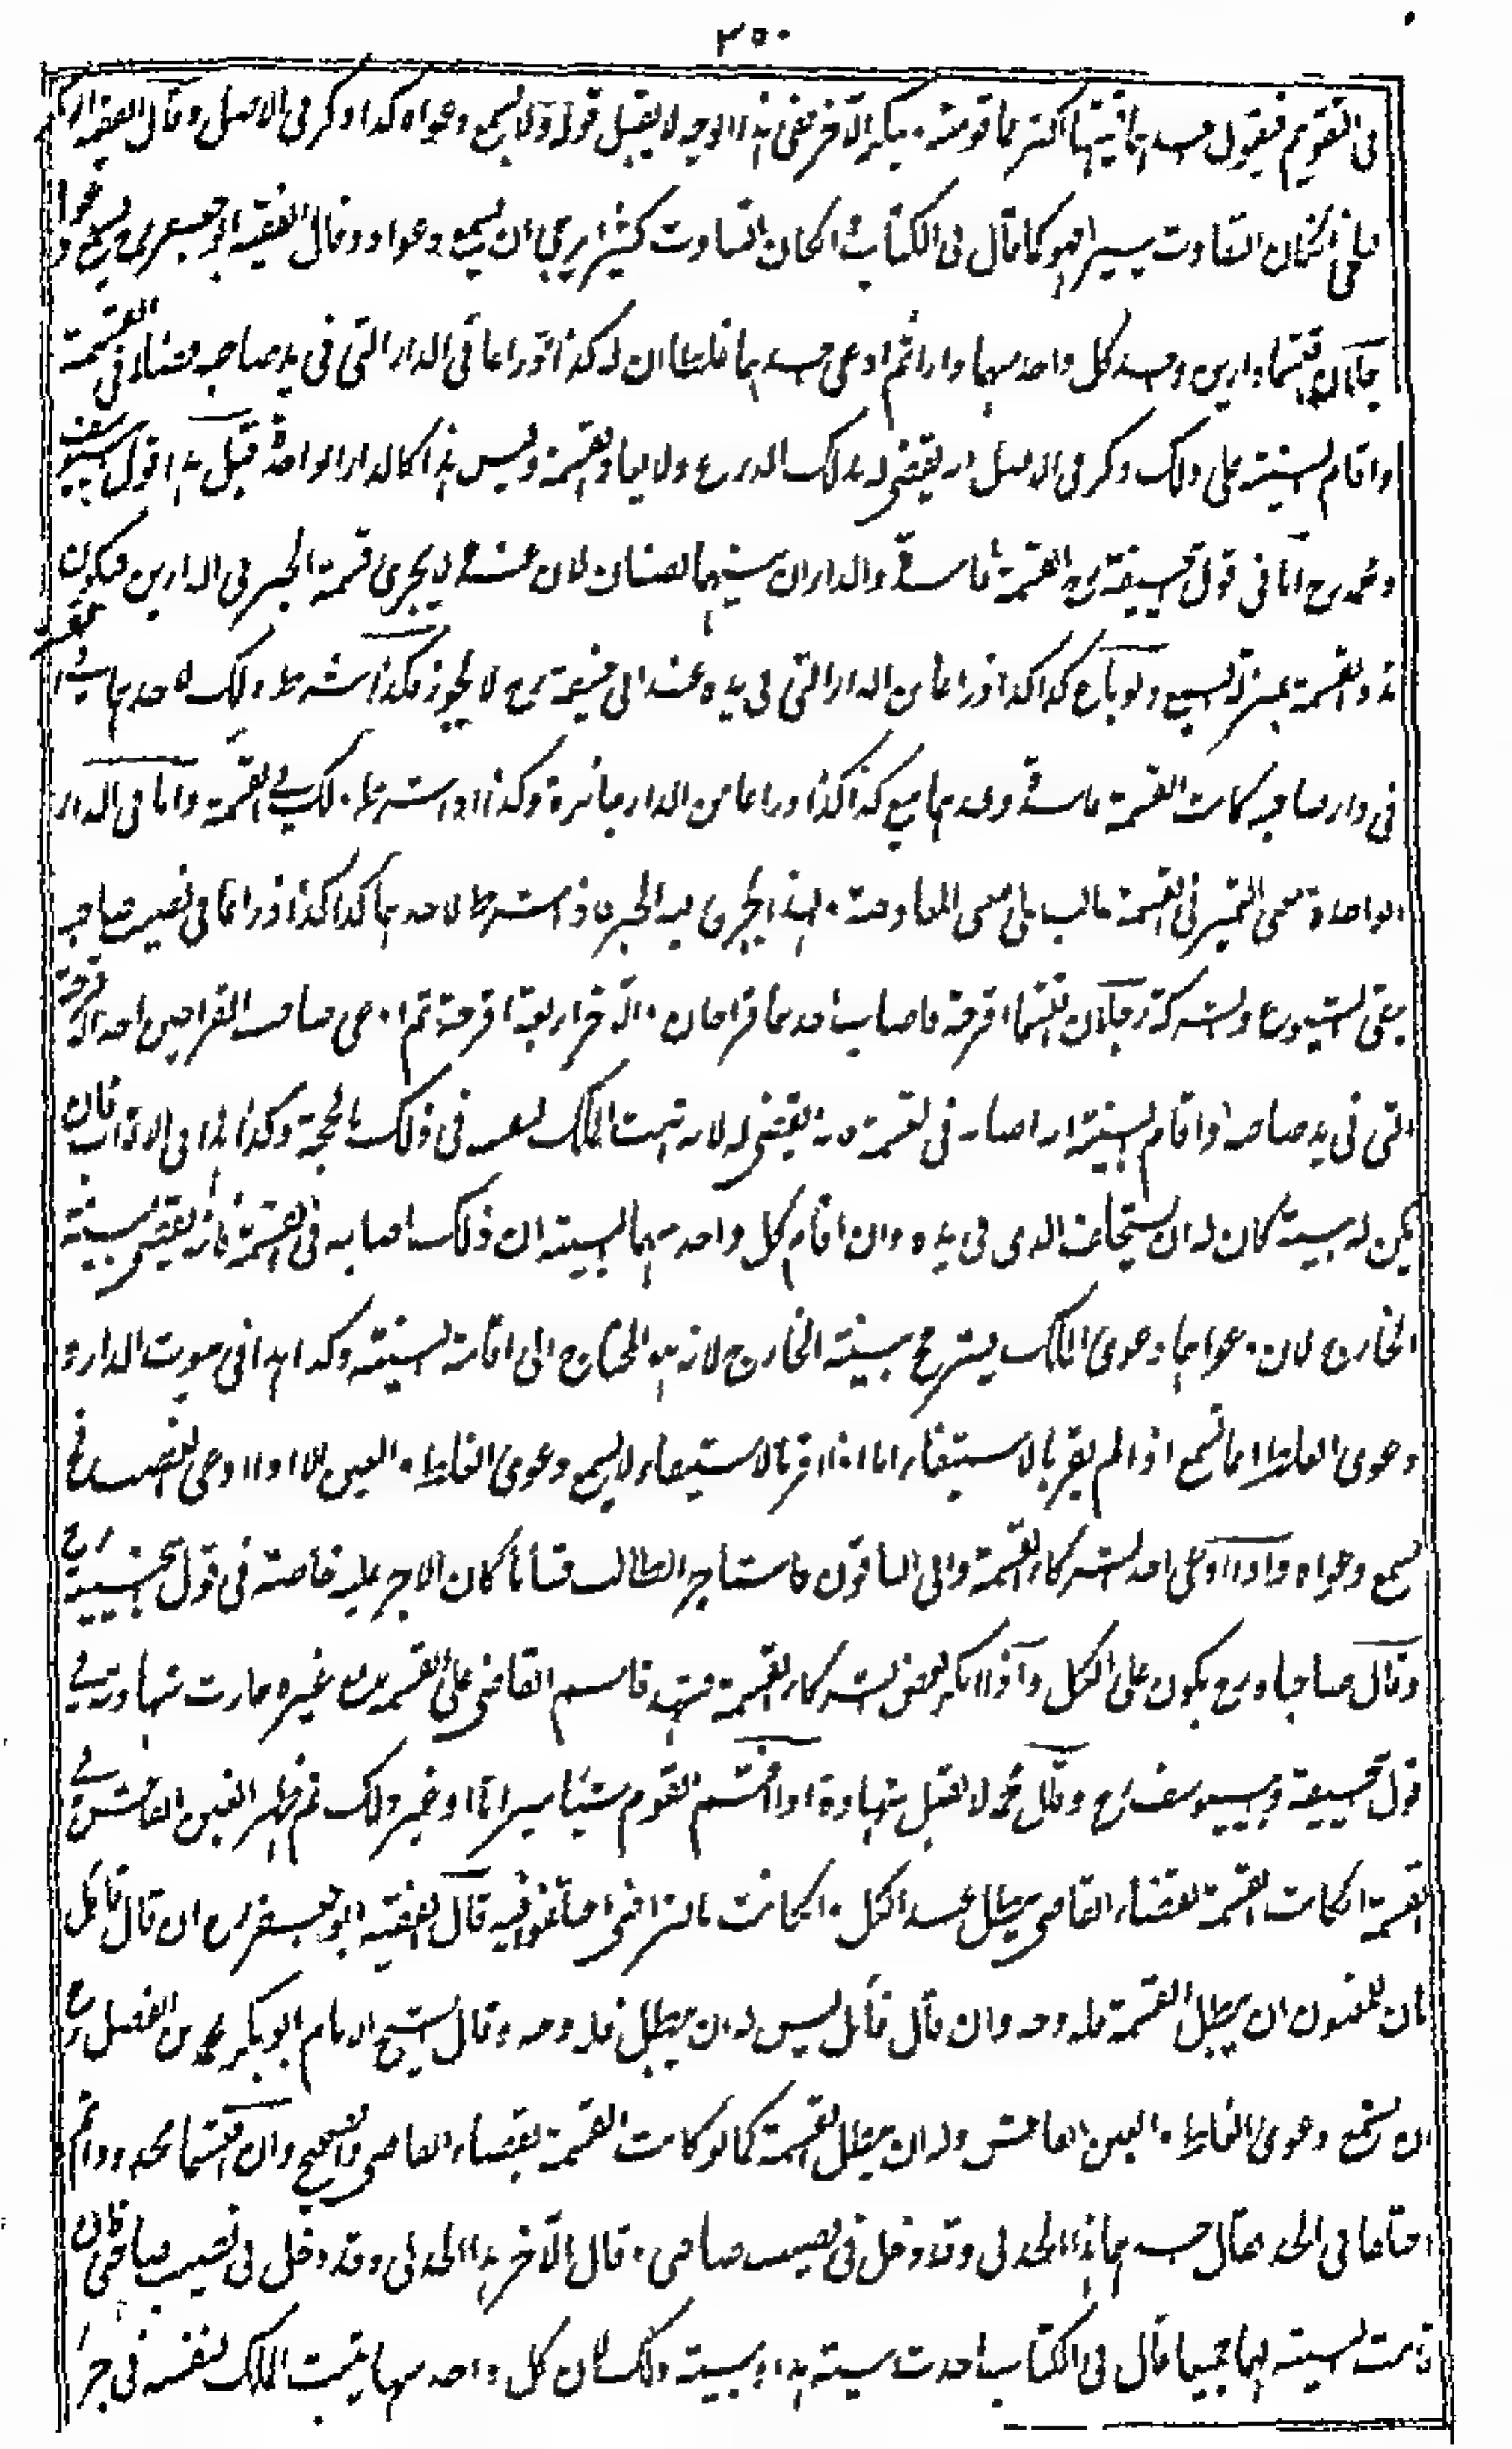 ٣٥٠
فى التقويم فيقول احدهما قيمتها اكثر مما قومته وينكر الآخر ففى هذا الوجه لا يقبل قوله ولا يسمع دعواه كذا ذكر فى الاصل وقال الفقيه ابو
ان كان التفاوت يسيرا فهو كما قال فى الكتاب وان كان التفاوت كثيرا ينبغى ان يسمع دعواه وقال الفقيه ابو جعفر رح يسمع دعواه
رجلان اقتسما دارين واخذ كل واحد منهما دارا ثم ادعى احدهما غلطا ان له كذا ذراعا فى الدار التى فى يد صاحبه فضلا فى القسمة
واقام البينة على ذلك ذكر فى الاصل انه يقضى له بذلك الذرع ولا يعاد القسمة وليس هذا كالدار الواحدة قيل هذا قول ابى يوسف
ومحمد رح اما فى قول ابى حنيفة رح القسمة فاسدة والداران بينهما نصفان لان عنده لا يجرى قسمة الجبر فى الدارين فيكون
هذه القسمة بمنزلة البيع ولو باع كذا كذا ذراعا من الدار التى فى يده عند ابى حنيفة رح لا يجوز فكذا اذا شرط ذلك لاحدهما
فى دار صاحبه كانت القسمة فاسدة وعندهما بيع كذا كذا ذراعا من الدار جائزة وكذا اذا شرط ذلك فى القسمة واما فى الدار
الواحدة معنى التمييز فى القسمة غالب على معنى المعاوضة ولهذا يجرى فيه الجبر فاذا شرط لاحدهما كذا كذا ذراعا فى نصيب صاحبه
يبقى الشيوع والشركة رجلان اقتسما اقرحة فاصاب احدهما قراحان والآخر اربعة اقرحة ثم ادعى صاحب القراحين احد الاقرحة
التى فى يد صاحبه واقام البينة انه اصابه فى القسمة فانه يقضى له لانه اثبت الملك لنفسه فى ذلك بالحجة وكذا هذا فى الاثواب فان
لم يكن له بينة كان له ان يستحلف الذى فى يده وان اقام كل واحد منهما البينة ان ذلك اصابه فى القسمة فانه يقضى ببينة
الخارج لان دعواهما دعوى الملك فيترجح بينة الخارج لانه هو المحتاج الى اقامة البينة وكذا هذا فى بيوت الدار و
دعوى الغلط انما تسمع اذا لم يقر بالاستيفاء اما اذا اقر بالاستيفاء لا يسمع دعوى الغلط والغبن الا اذا ادعى الغصب فح
تسمع دعواه واذا ادعى احد الشركاء القسمة وابى الباقون فاستاجر الطالب قساما كان الاجر عليه خاصة فى قول ابى حنيفة رح
وقال صاحباه رح يكون على الكل واذا انكر بعض الشركاء القسمة فشهد قاسم القاضى على القسمة مع غيره جازت شهادته فى
قول ابى حنيفة وابى يوسف رح وقال محمد لا تقبل شهادة اذا اقتسم القوم شيئا ميراثا او غير ذلك ثم ظهر الغبن الفاحش فى
القسمة ان كانت القسمة بقضاء القاضى يبطل عند الكل وان كانت بالتراضى اختلفوا فيه قال الفقيه ابو جعفر رح ان قال قائل
بان للمغبون ان يبطل القسمة فله وجه وان قال قائل ليس له ان يبطل فله وجه وقال الشيخ الامام ابو بكر محمد بن الفضل رح
ان تسمع دعوى الغلط والغبن الفاحش وله ان يبطل القسمة كما لو كانت القسمة بقضاء القاضى والصحيح وان اقتسما ثم
اختلفا فى الحد فقال احدهما هذا الحد لى وقد دخل فى نصيب صاحبى وقال الآخر هذا الحد لى وقد دخل فى نصيب صاحبى فان
قامت البينة لهما جميعا قال فى الكتاب اخذت بينة هذا وبينة ذلك لان كل واحد منهما يثبت الملك لنفسه فى جزء